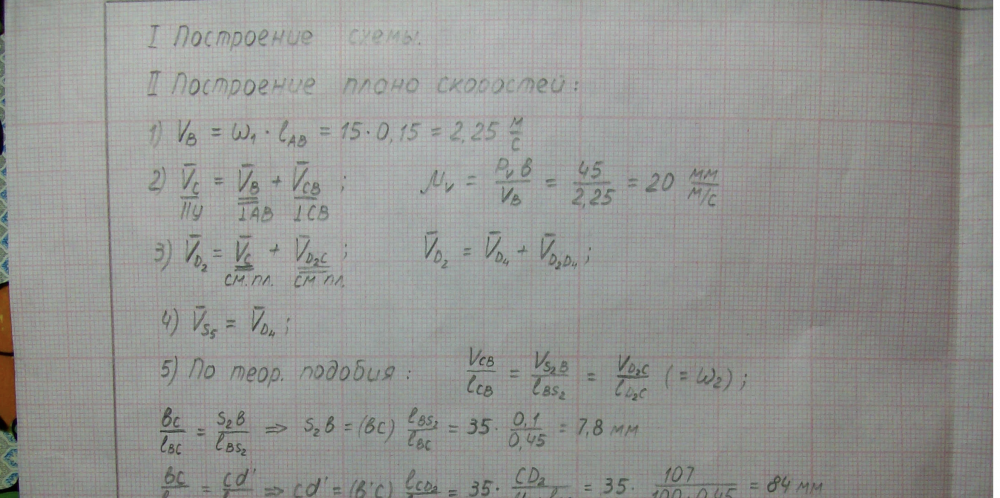 I Построение схемы.
II Построение плана скоростей:
1) V_B = ω₁ · l_AB = 15 · 0,15 = 2,25 м/с
2) V̄_C = V̄_B + V̄_CB ; μ_v = P_v в / V_B = 45 / 2,25 = 20 мм / м/с
//У ⊥AB ⊥CB
3) V̄_D₂ = V̄_C + V̄_D₂C ; V̄_D₂ = V̄_D₄ + V̄_D₂D₄ ;
см. пл. см пл.
4) V̄_S₅ = V̄_D₄ ;
5) По теор. подобия : V_CB / l_CB = V_S₂B / l_BS₂ = V_D₂C / l_D₂C (= ω₂) ;
вс / l_BC = s₂в / l_BS₂ ⇒ s₂в = (вс) l_BS₂ / l_BC = 35 · 0,1 / 0,45 = 7,8 мм
вс / = cd' / ⇒ cd' = (в'с) l_CD₂ / = 35 · CD₂ / = 35 · 107 / 100 · 0,45 = 84 мм